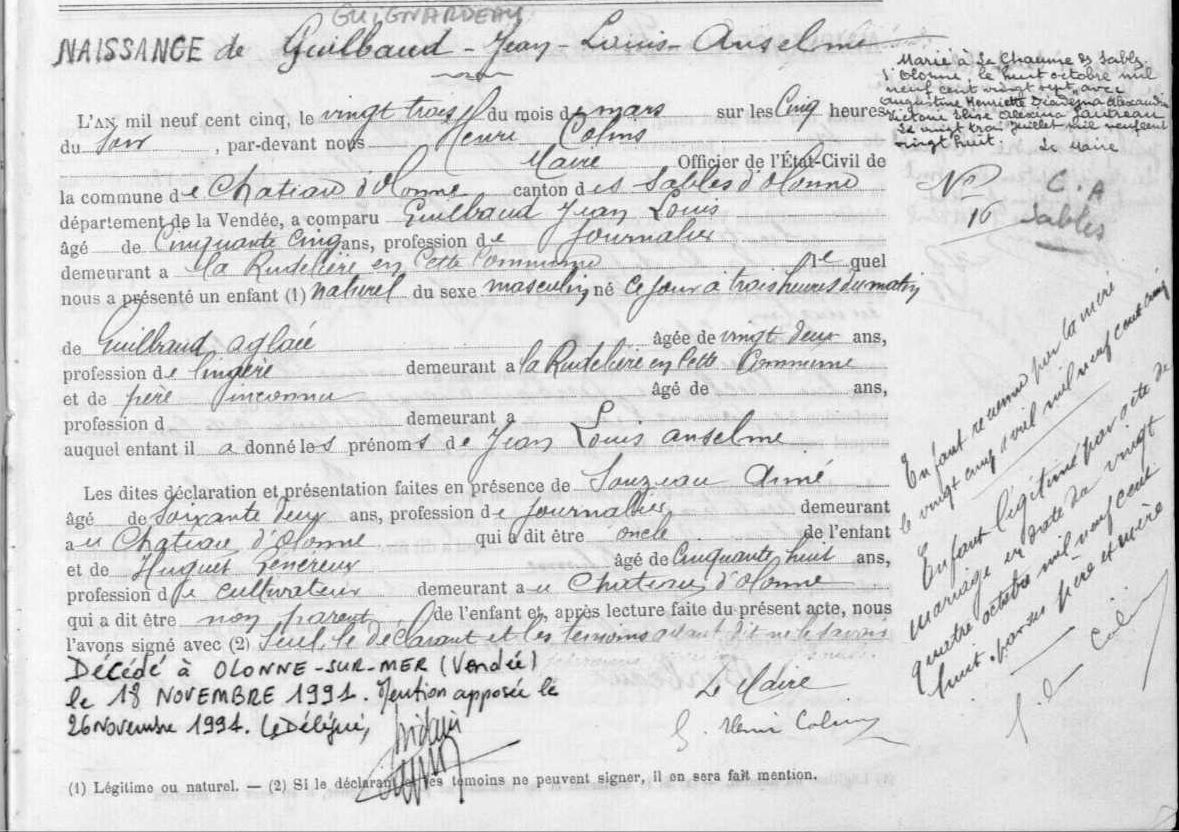 GUIGNARDEAU
NAISSANCE de Guilbaud - Jean - Louis - Anselme
L'AN mil neuf cent cinq, le vingt trois du mois de mars sur les Cinq heures
du soir, par-devant nous Henri Colins
Maire Officier de l'État-Civil de
la commune de Chateau d'Olonne canton des Sables d'Olonne
département de la Vendée, a comparu Guilbaud Jean Louis
âgé de Cinquante Cinq ans, profession de journalier
demeurant a la Rudelière en Cette Commune le quel
nous a présenté un enfant (1) naturel du sexe masculin né ce jour à trois heures du matin
de Guilbaud aglaée âgée de vingt deux ans,
profession de lingère demeurant a la Rudelière en Cette Commune
et de père inconnu âgé de ans,
profession d demeurant a
auquel enfant il a donné les prénoms de Jean Louis anselme
Les dites déclaration et présentation faites en présence de Souzeau Aimé
âgé de Soixante deux ans, profession de journalier demeurant
au Chateau d'Olonne qui a dit être oncle de l'enfant
et de Huguet âgé de Cinquante huit ans,
profession de cultivateur demeurant au Chateau d'Olonne
qui a dit être non parent de l'enfant et, après lecture faite du présent acte, nous
l'avons signé avec (2) Seul, le déclarant et les témoins ayant dit ne le savoir
Le Maire
Henri Colins
DÉCÉDÉ à OLONNE-SUR-MER (Vendée)
le 18 NOVEMBRE 1991. Mention apposée le
26 Novembre 1991. Le Délégué,
(1) Légitime ou naturel. — (2) Si le déclarant et les témoins ne peuvent signer, il en sera fait mention.
Marié à La Chaume des Sables
d'Olonne, le huit octobre mil
neuf cent vingt sept, avec
Augustine Henriette Alexandrine
Victoire Elise Alexina Gautreau
Le vingt trois Juillet mil neuf cent
vingt huit. Le Maire
No 16
C.A
Sables
Enfant reconnu par la mère
le vingt cinq avril mil neuf cent cinq
Enfant légitimé par acte de
mariage en date du vingt
quatre octobre mil neuf cent
huit par ses père et mère